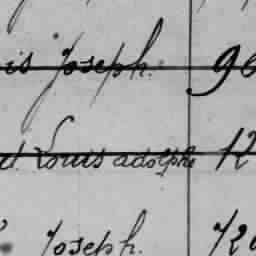 is Joseph. 96
d Louis adolphe 12
Joseph. 720